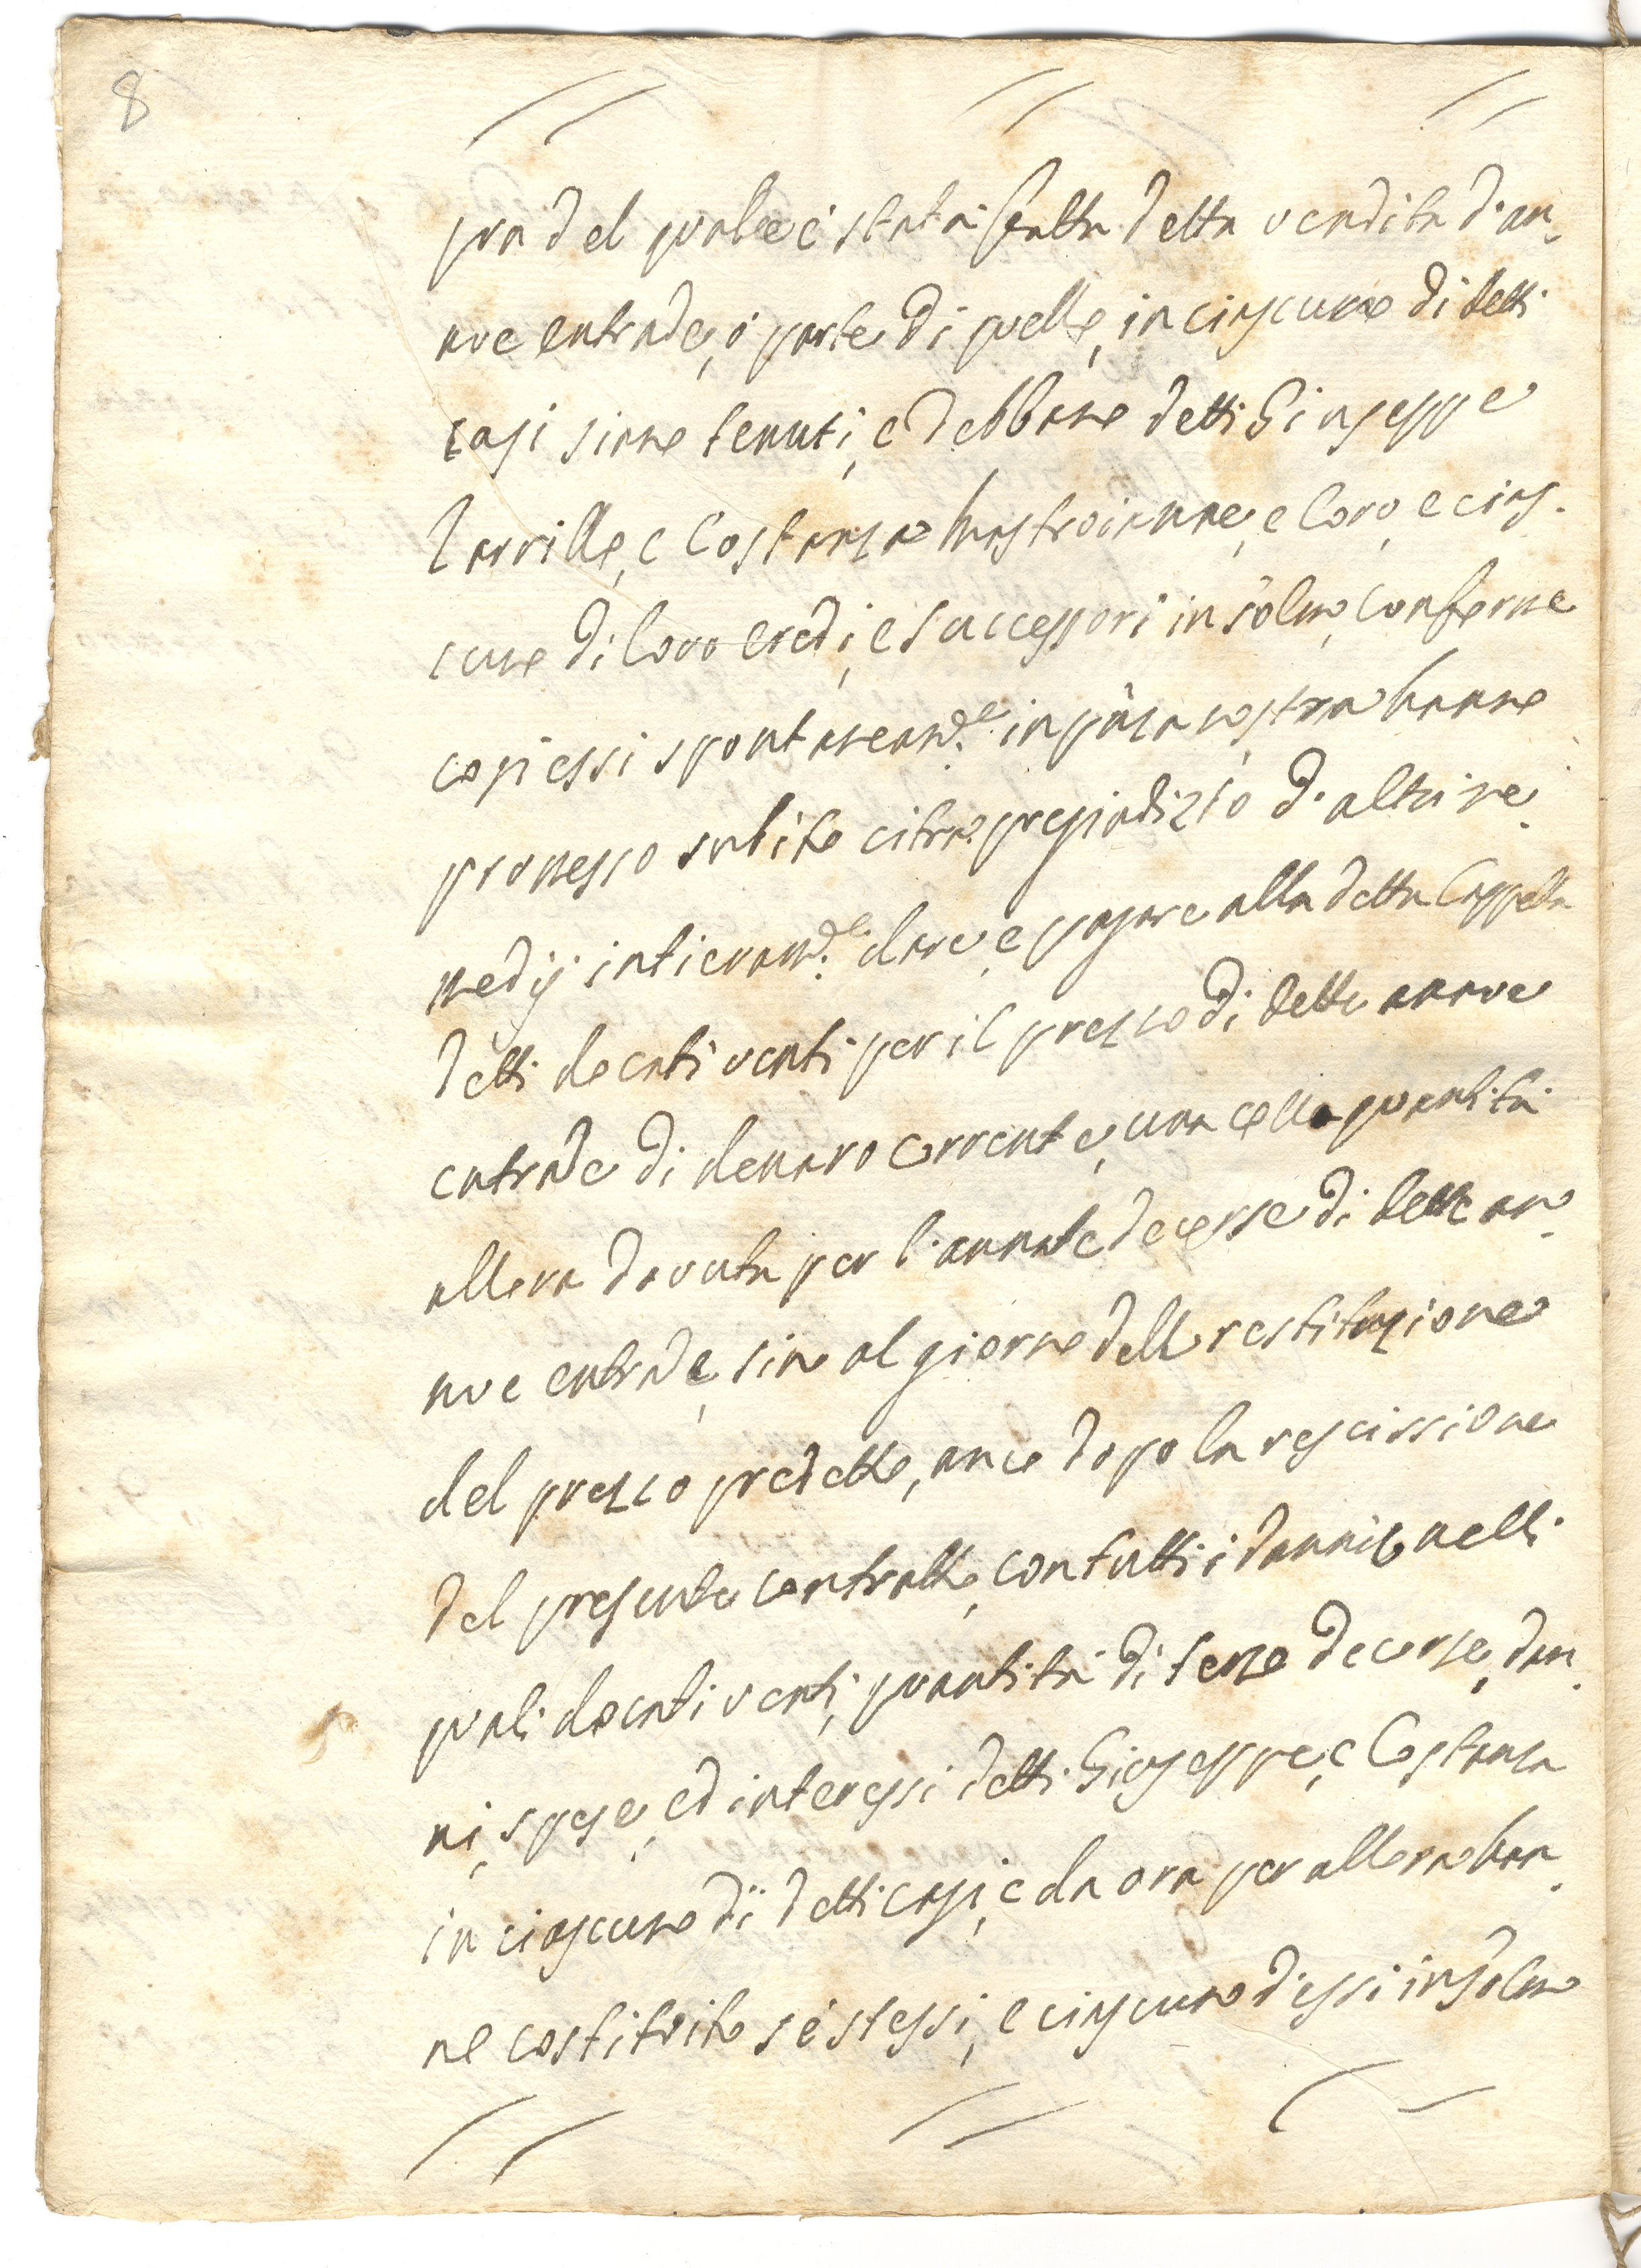 8
pra del quale è stata fatta detta vendita d'an-
nue entrade, ò parte di quelle, in ciascuno di detti
casi siano tenuti, e debbano detti Giuseppe
Zarrillo, e Costanza Mastroianne, e loro, e cias-
cuno di loro eredi, e successori in solm, conforme
così essi spontaneam.te in pñza nostra hanno
promesso subito citra pregiudizio d'altri re-
medij intieram.te dare, e pagare alla detta Cappella
detti docati venti per il prezzo di dette annue
entrade di denaro corrente, una colla quantità
allora dovuta per l'annate decorse di dette an-
nue entrade, sino al giorno della restituzione
del prezzo predetto, anco dopo la rescissione
del presente contratto, con tutti i danni, nelli
quali docati venti, quantità di terze decorse, dan-
ni, spese, ed interessi detti Giuseppe, e Costanza
in ciascuno di detti casi, e da ora per allora han-
no costituito sè stessi, e ciascuno d'essi in solm